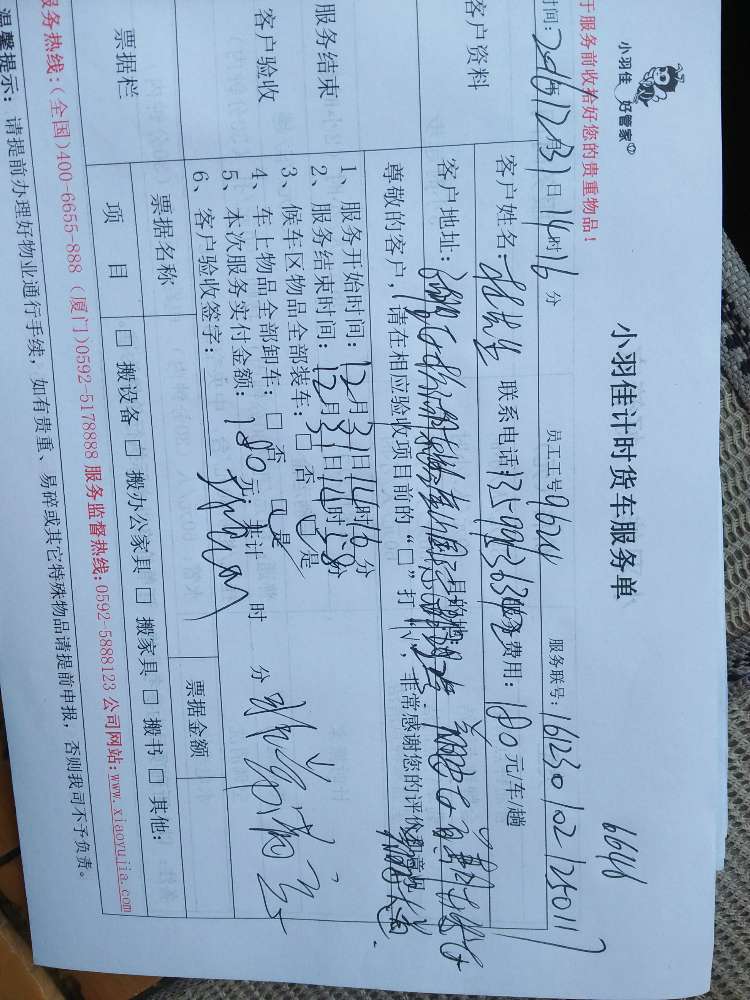 小羽佳 好管家
小羽佳计时货车服务单
6646
于服务前收拾好您的贵重物品！
时间：2016年12月31日14时16分 员工工号9624 服务联号：161230102125011
客户资料
客户姓名： 联系电话 服务费用：180元/车/趟
客户地址： 目的地：
尊敬的客户，请在相应验收项目前的“□”打“√，非常感谢您的评价
服务结束
客户验收
1、服务开始时间：12月31日14时16分
2、服务结束时间：12月31日14时58分
3、候车区物品全部装车：□否 □是
4、车上物品全部卸车：□否 □是
5、本次服务实付金额：180元；共计 时 分 非常满意
6、客户验收签字：
票据栏
票据名称 票据金额
项目 □搬设备 □搬办公家具 □搬家具 □搬书 □其他：
服务热线：（全国）400-6655-888（厦门）0592-5178888 服务监督热线：0592-5888123 公司网站：www.xiaoyujia.com
温馨提示：请提前办理好物业通行手续，如有贵重、易碎或其它特殊物品请提前申报，否则我司不予负责。